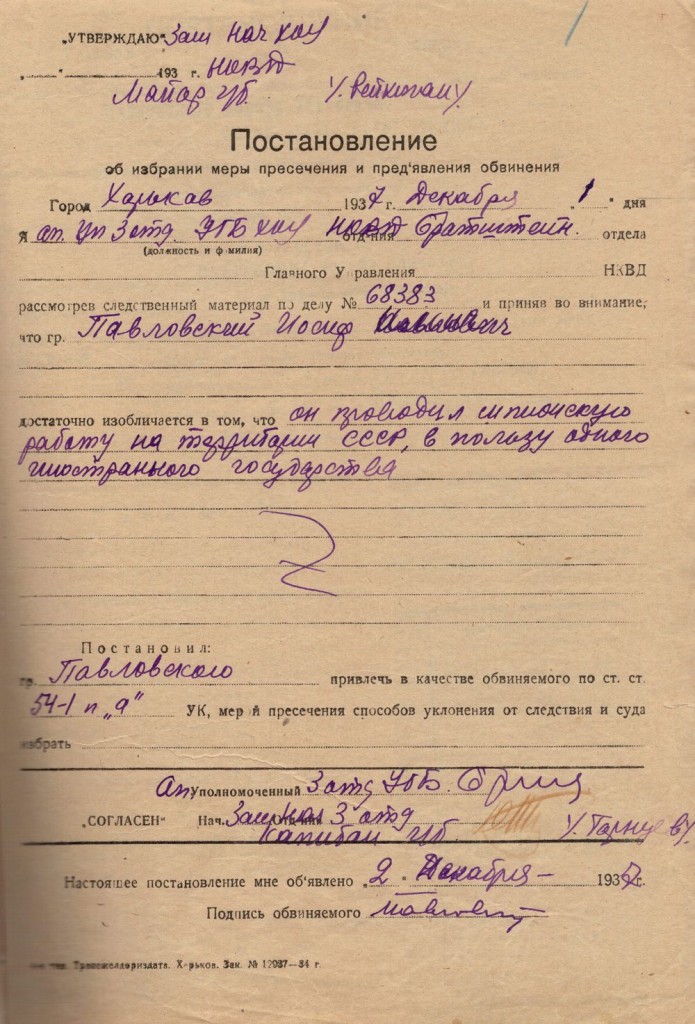 „УТВЕРЖДАЮ“ Зам нач ХОУ
„ “ 193 г. НКВД
Майор ГБ /Рейхман/
Постановление
об избрании меры пресечения и пред'явления обвинения
Город Харьков 1937 г. Декабря „1“ дня
Я оп. Уп 3 отд УГБ ХОУ НКВД отд-ния отдела
(должность и фамилия)
Главного Управления НКВД
рассмотрев следственный материал по делу № 68383 и приняв во внимание,
что гр. Павловский Иосиф
достаточно изобличается в том, что он проводил шпионскую
работу на территории СССР, в пользу одного
иностранного государства
Постановил:
гр. Павловского привлечь в качестве обвиняемого по ст. ст.
54-1 п „а“ УК, мерой пресечения способов уклонения от следствия и суда
избрать
Оп. Уполномоченный 3 отд УГБ
„СОГЛАСЕН“ Нач. Отд-ния Зам Нач 3 отд
Капитан ГБ
Настоящее постановление мне об'явлено „2 “ Декабря 1937 г.
Подпись обвиняемого
Харьков. Зак. № 12937—34 г.